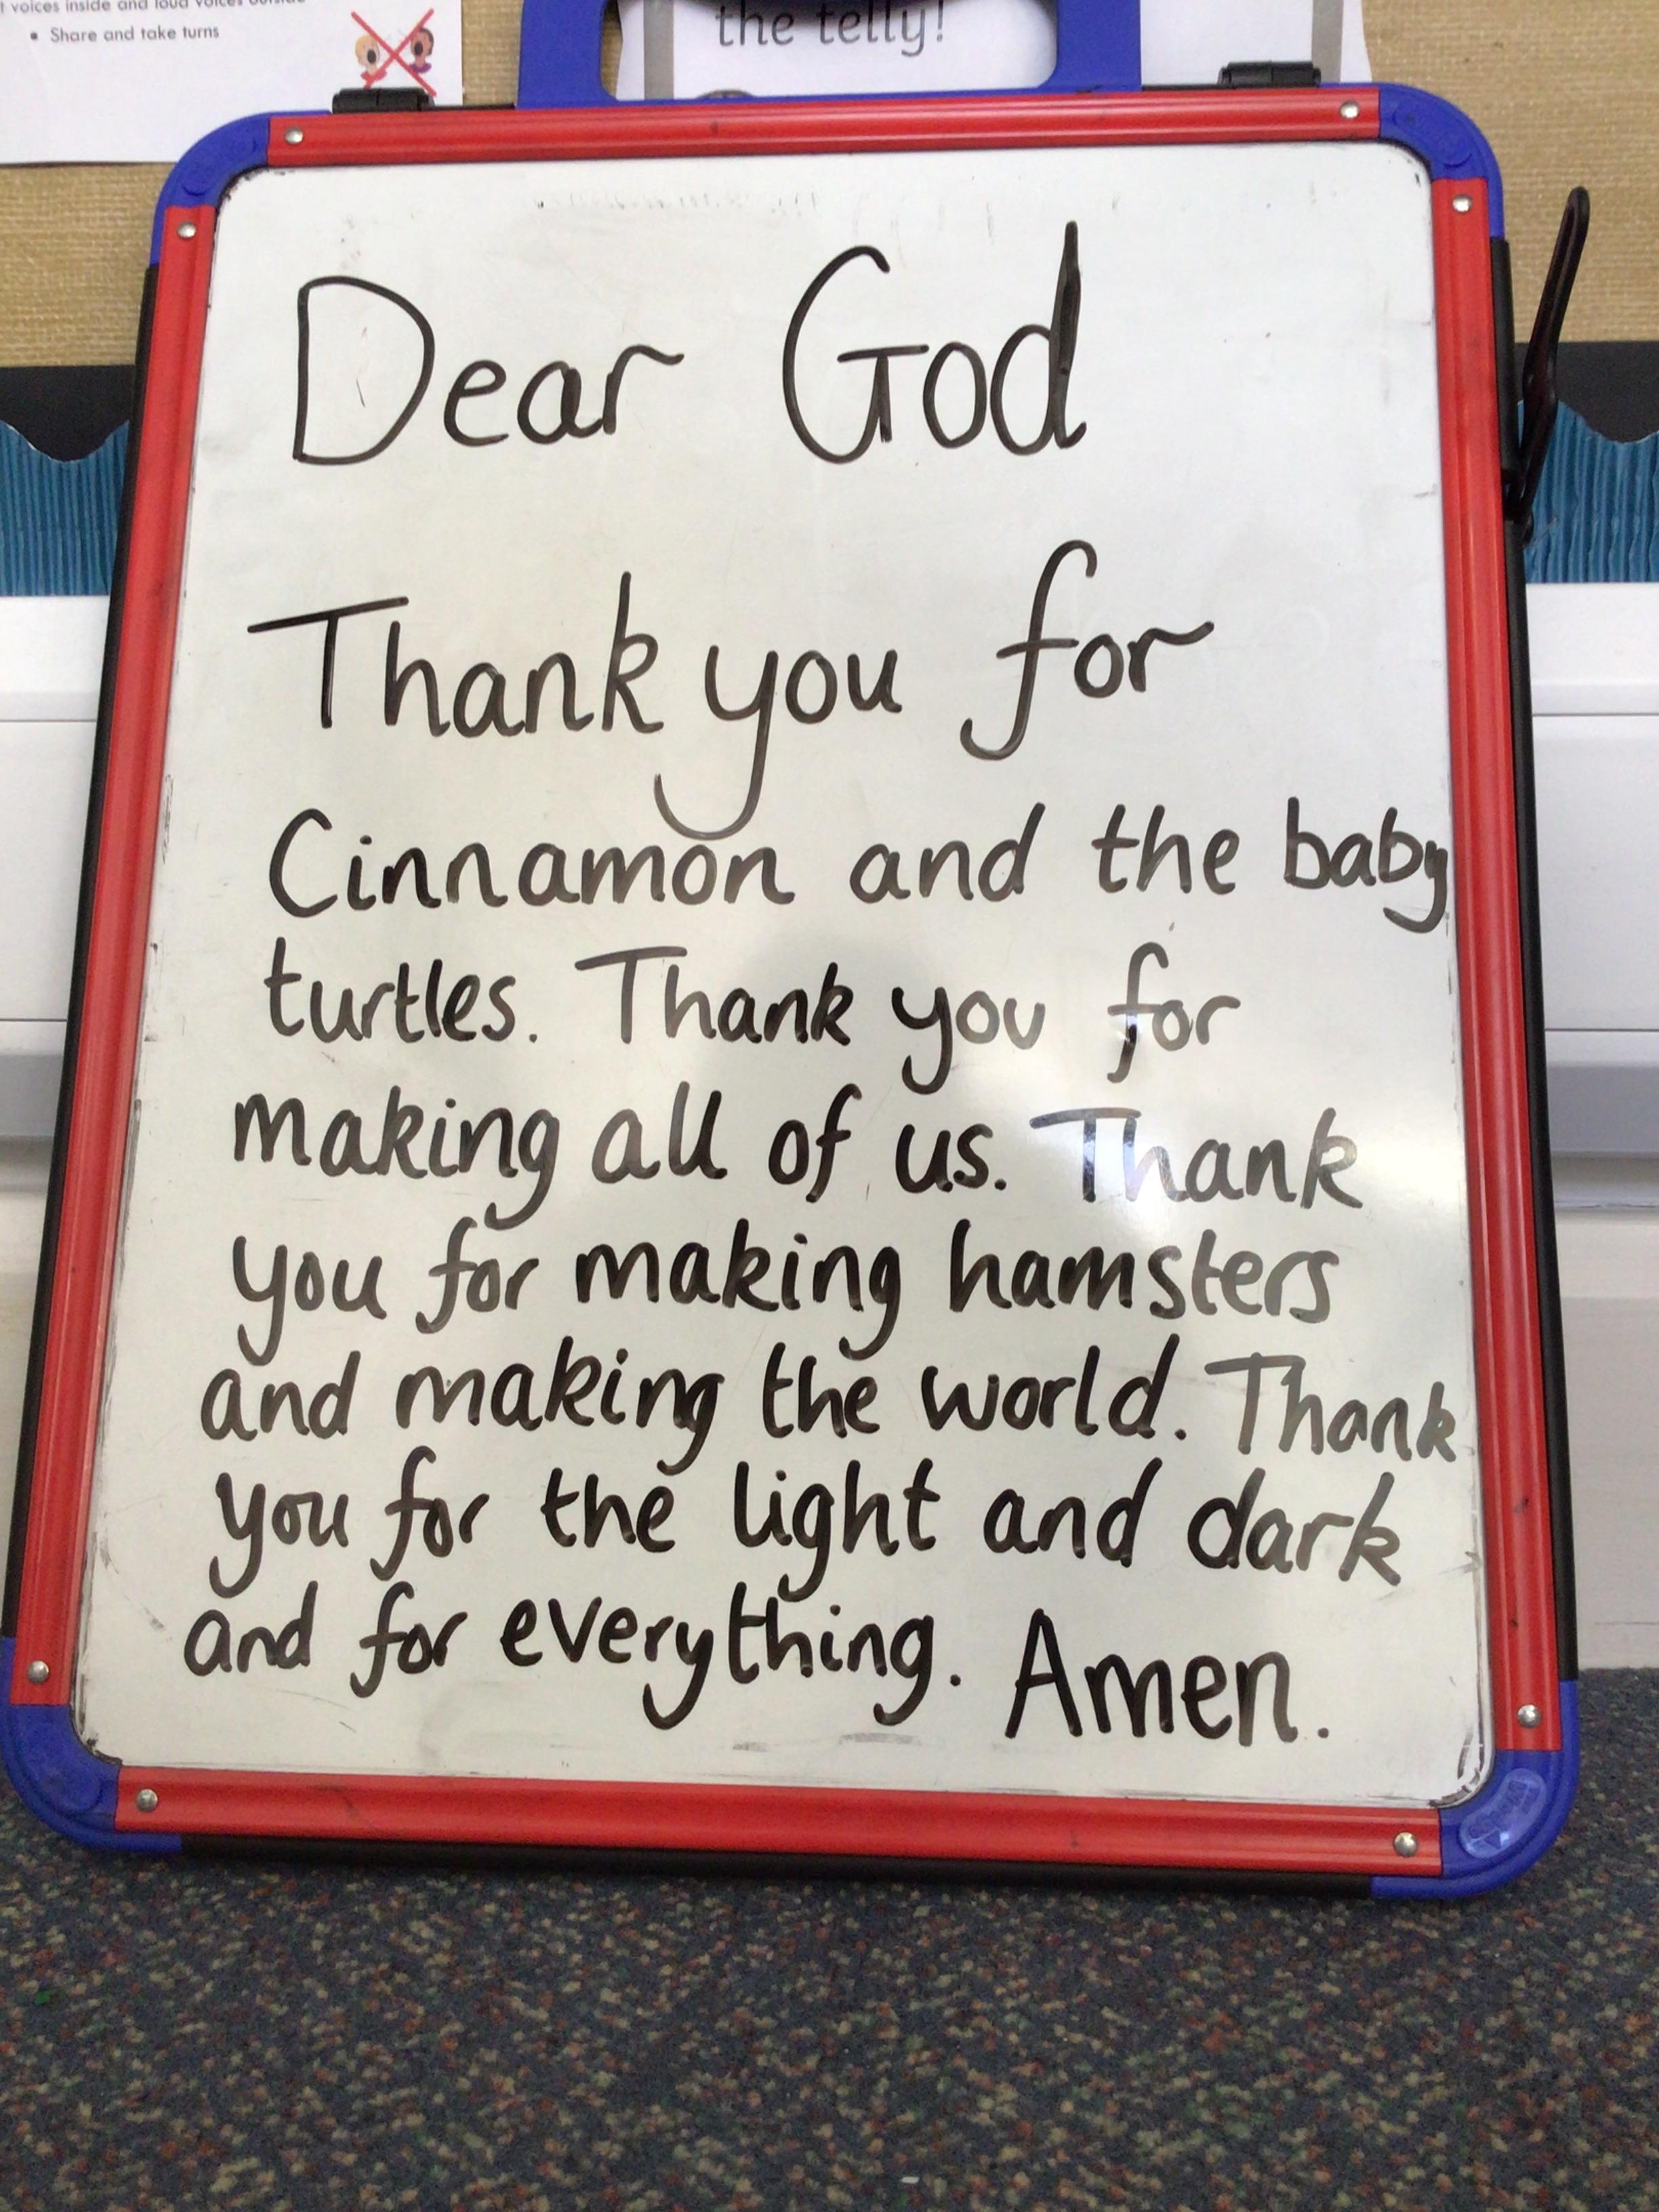 voices inside and loud voices outside
• Share and take turns
the telly!
Dear God
Thank you for
Cinnamon and the baby
turtles. Thank you for
making all of us. Thank
you for making hamsters
and making the world. Thank
you for the light and dark
and for everything. Amen.